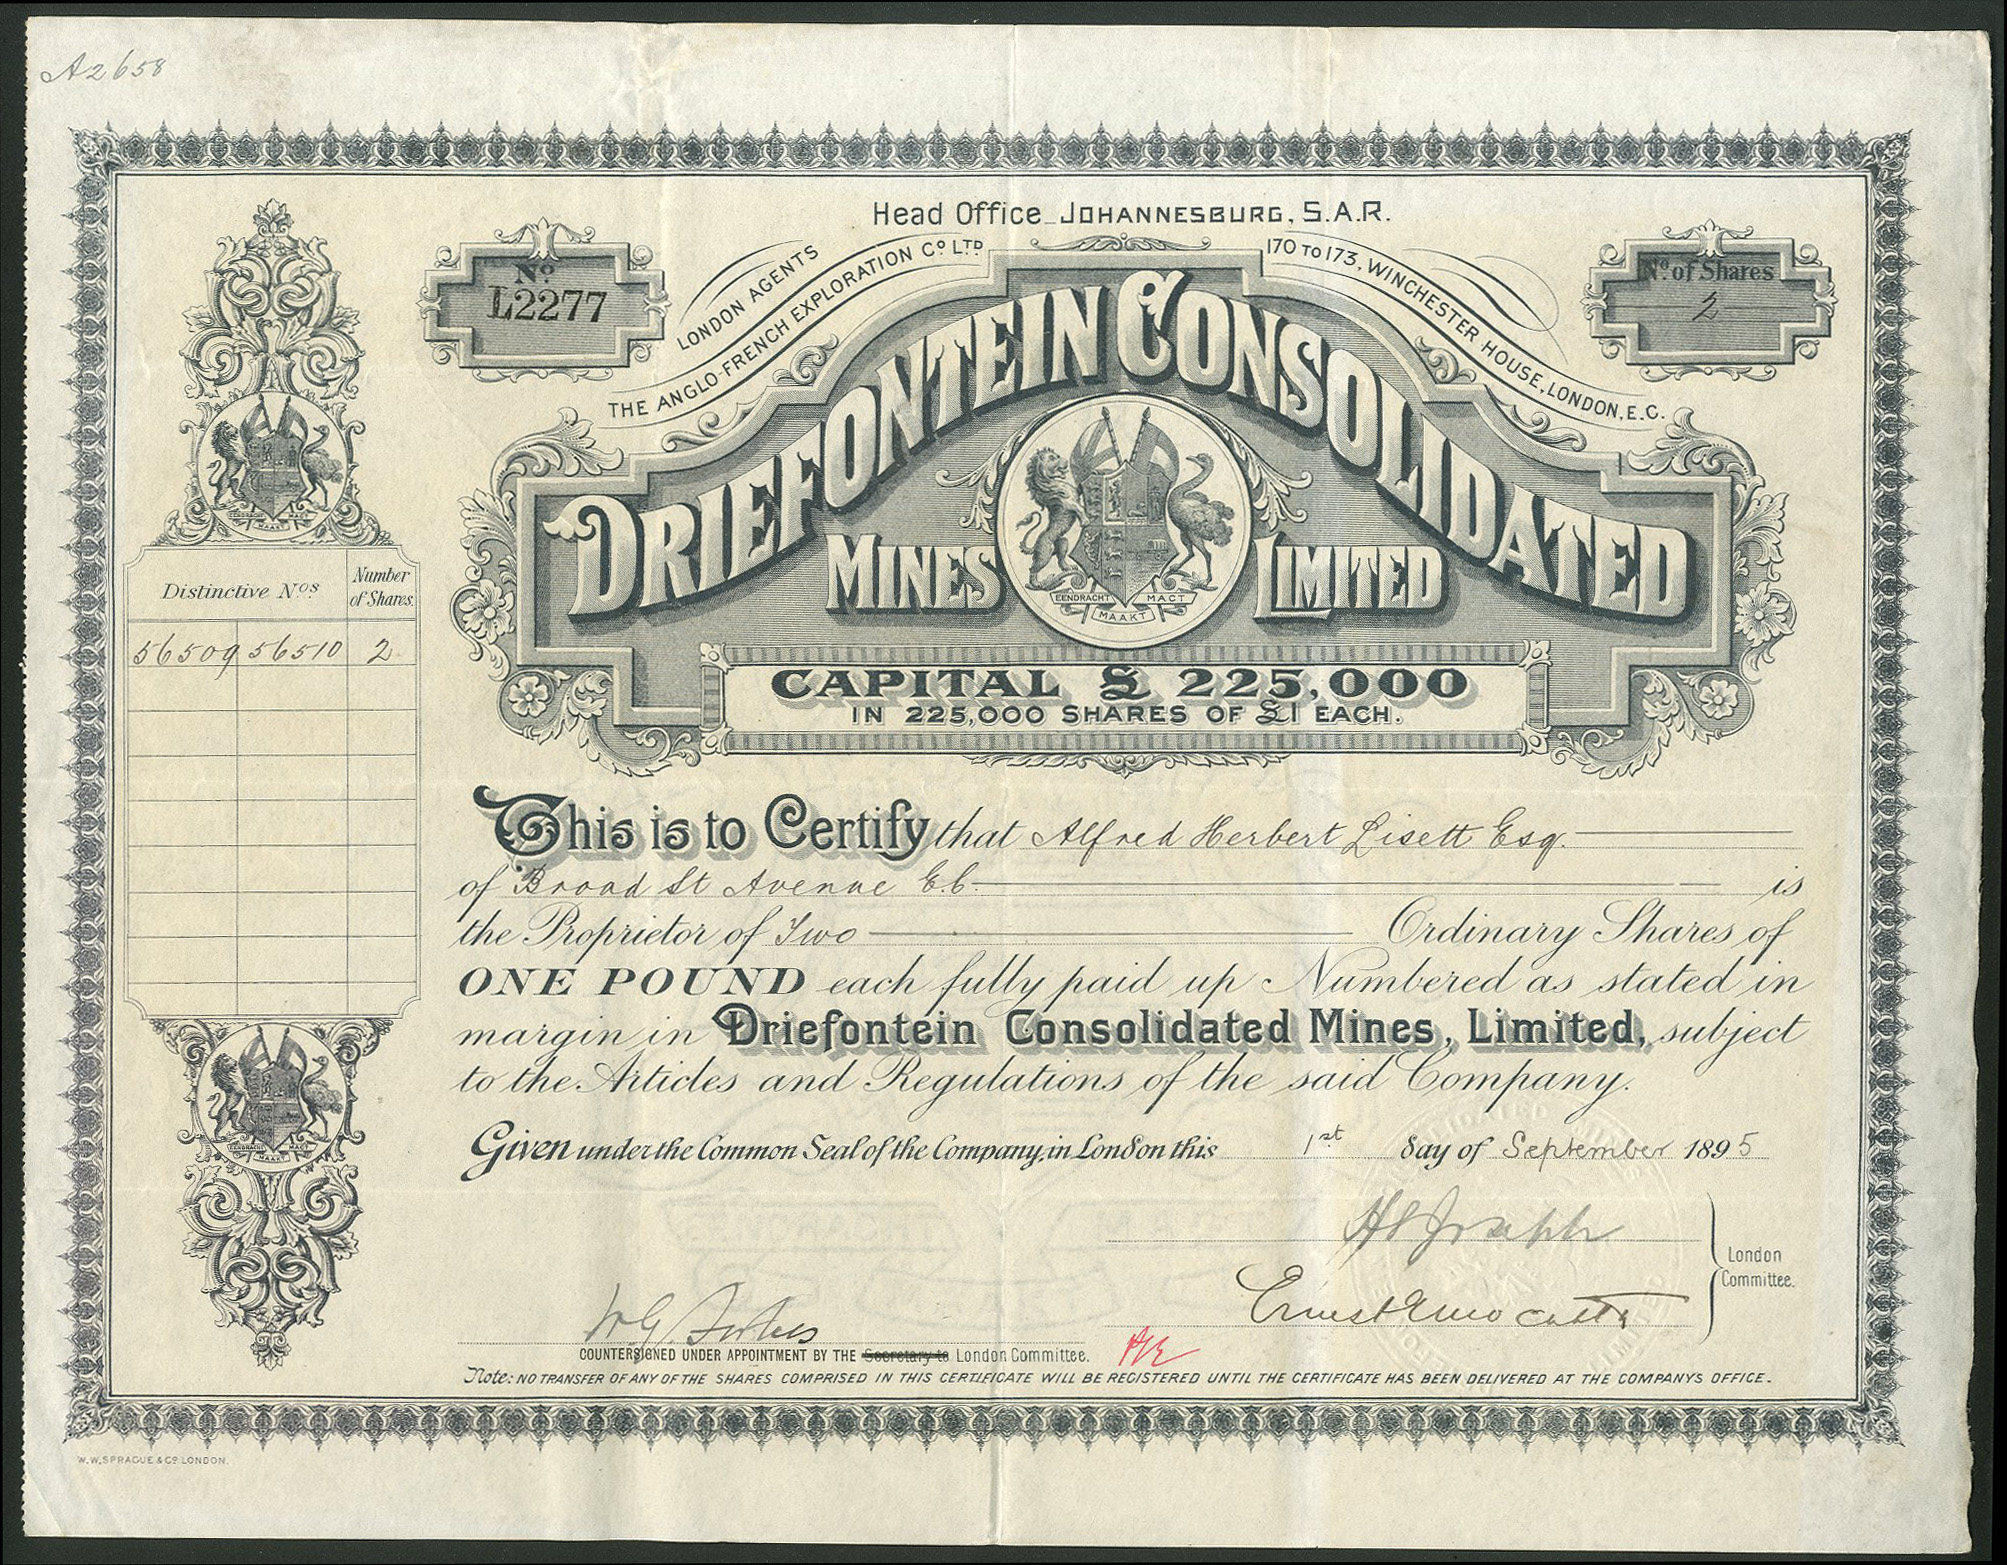 A2658
Head Office_JOHANNESBURG, S.A.R.
LONDON AGENTS
THE ANGLO-FRENCH EXPLORATION Cº LTD
170 TO 173, WINCHESTER HOUSE, LONDON, E.C.
Nº
L2277
Nº of Shares
2
DRIEFONTEIN CONSOLIDATED
MINES LIMITED
EENDRACHT MAAKT MACT
CAPITAL £ 225,000
IN 225,000 SHARES OF £1 EACH.
EENDRACHT MAAKT MACT
Distinctive Nos
Number of Shares.
56509 56510 2
EENDRACHT MAAKT MACT
This is to Certify that Alfred Herbert Lisett Esq.
of Broad St Avenue E.C. is
the Proprietor of Two Ordinary Shares of
ONE POUND each fully paid up Numbered as stated in
margin in Driefontein Consolidated Mines, Limited, subject
to the Articles and Regulations of the said Company.
Given under the Common Seal of the Company, in London this 1st day of September 1895
London
Committee.
COUNTERSIGNED UNDER APPOINTMENT BY THE Secretary to London Committee.
Note: NO TRANSFER OF ANY OF THE SHARES COMPRISED IN THIS CERTIFICATE WILL BE REGISTERED UNTIL THE CERTIFICATE HAS BEEN DELIVERED AT THE COMPANYS OFFICE.
W.W. SPRAGUE & Cº LONDON.